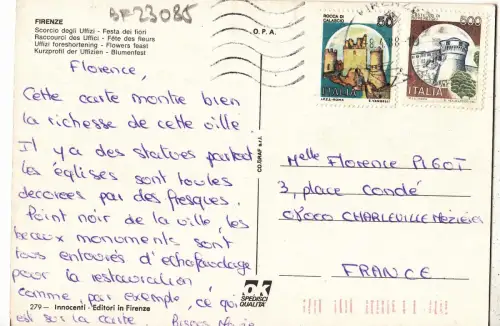 BF23085
FIRENZE
Scorcio degli Uffizi - Festa dei fiori
Raccourci des Uffici - Fête des fleurs
Uffizi foreshortening - Flowers feast
Kurzprofil der Uffizien - Blumenfest
D.P.A.
Florence,
Cette carte montre bien
la richesse de cette ville.
Il y a des statues partout
les églises sont toutes
décorées par des fresques.
Point noir de la ville, les
beaux monuments sont
tous entourés d'échafaudage
pour la restauration
comme, par exemple, ce qui
est sur la carte.
279 - Innocenti - Editori in Firenze
CO.GRAF s.r.l.
OK
SPEDISCI
QUALITÀ
ROCCA DI
CALASCIO
50
ITALIA
500
ITALIA
FIRENZE
Melle Florence PIGOT
3, place Condé
08000 CHARLEVILLE MEZIÈRES
FRANCE